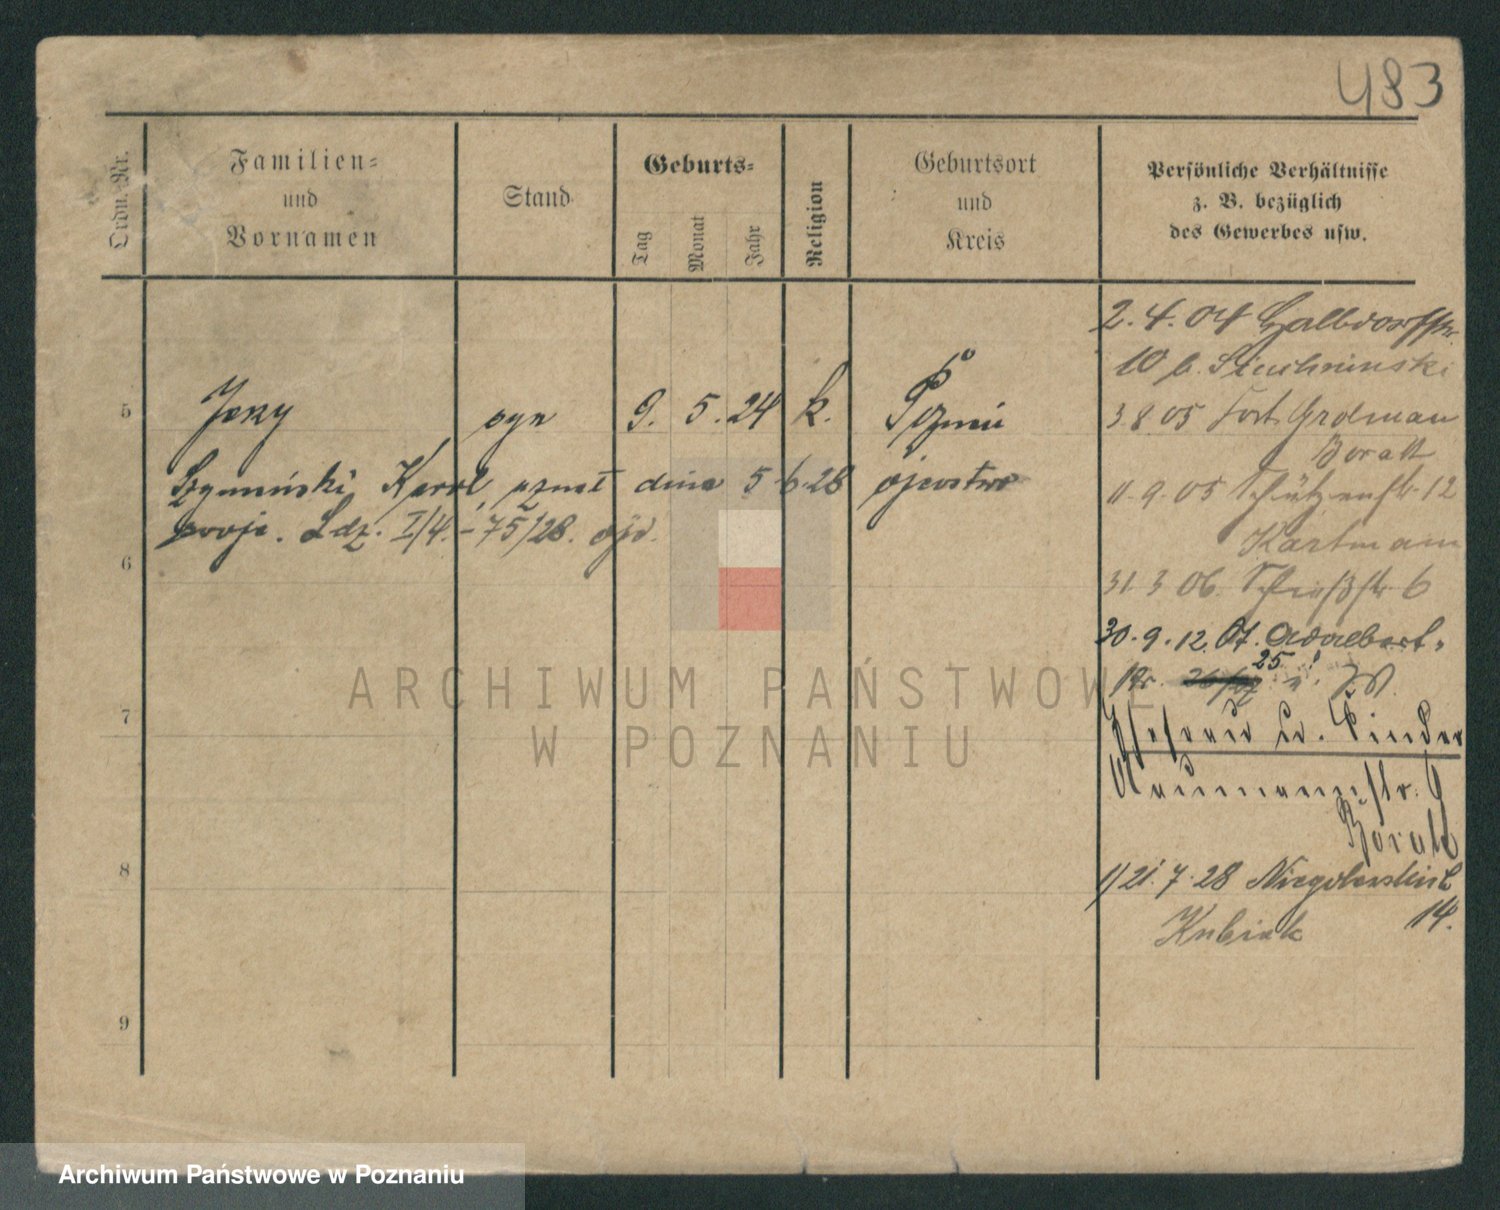 483
Ordn. Nr.
Familien-
und
Vornamen
Stand
Geburts-
Tag
Monat
Jahr
Religion
Geburtsort
und
Kreis
Persönliche Verhältnisse
z. B. bezüglich
des Gewerbes usw.
2. 4. 04 Halbdorfstr.
10 b.
5 Jerzy syn 9. 5. 24 k. Poznań
3. 8. 05 Fort Grolman
Boratt
Szymański Karol uznał dnia 5 6 28 ojcostwo
11. 9. 05 Schützenstr. 12
swoje. Ldz. I/4. - 75/28.
Hartmann
6
31. 3 06. Schießstr. 6
30. 9. 12. Ot. Adalbert-
str. 25
7
Ehefrau u. Kinder
Naumannstr. 9
Boratt
8
1) 21. 7. 28 Niegolewskich
14.
Kubiak
9
ARCHIWUM PAŃSTWOWE
W POZNANIU
Archiwum Państwowe w Poznaniu